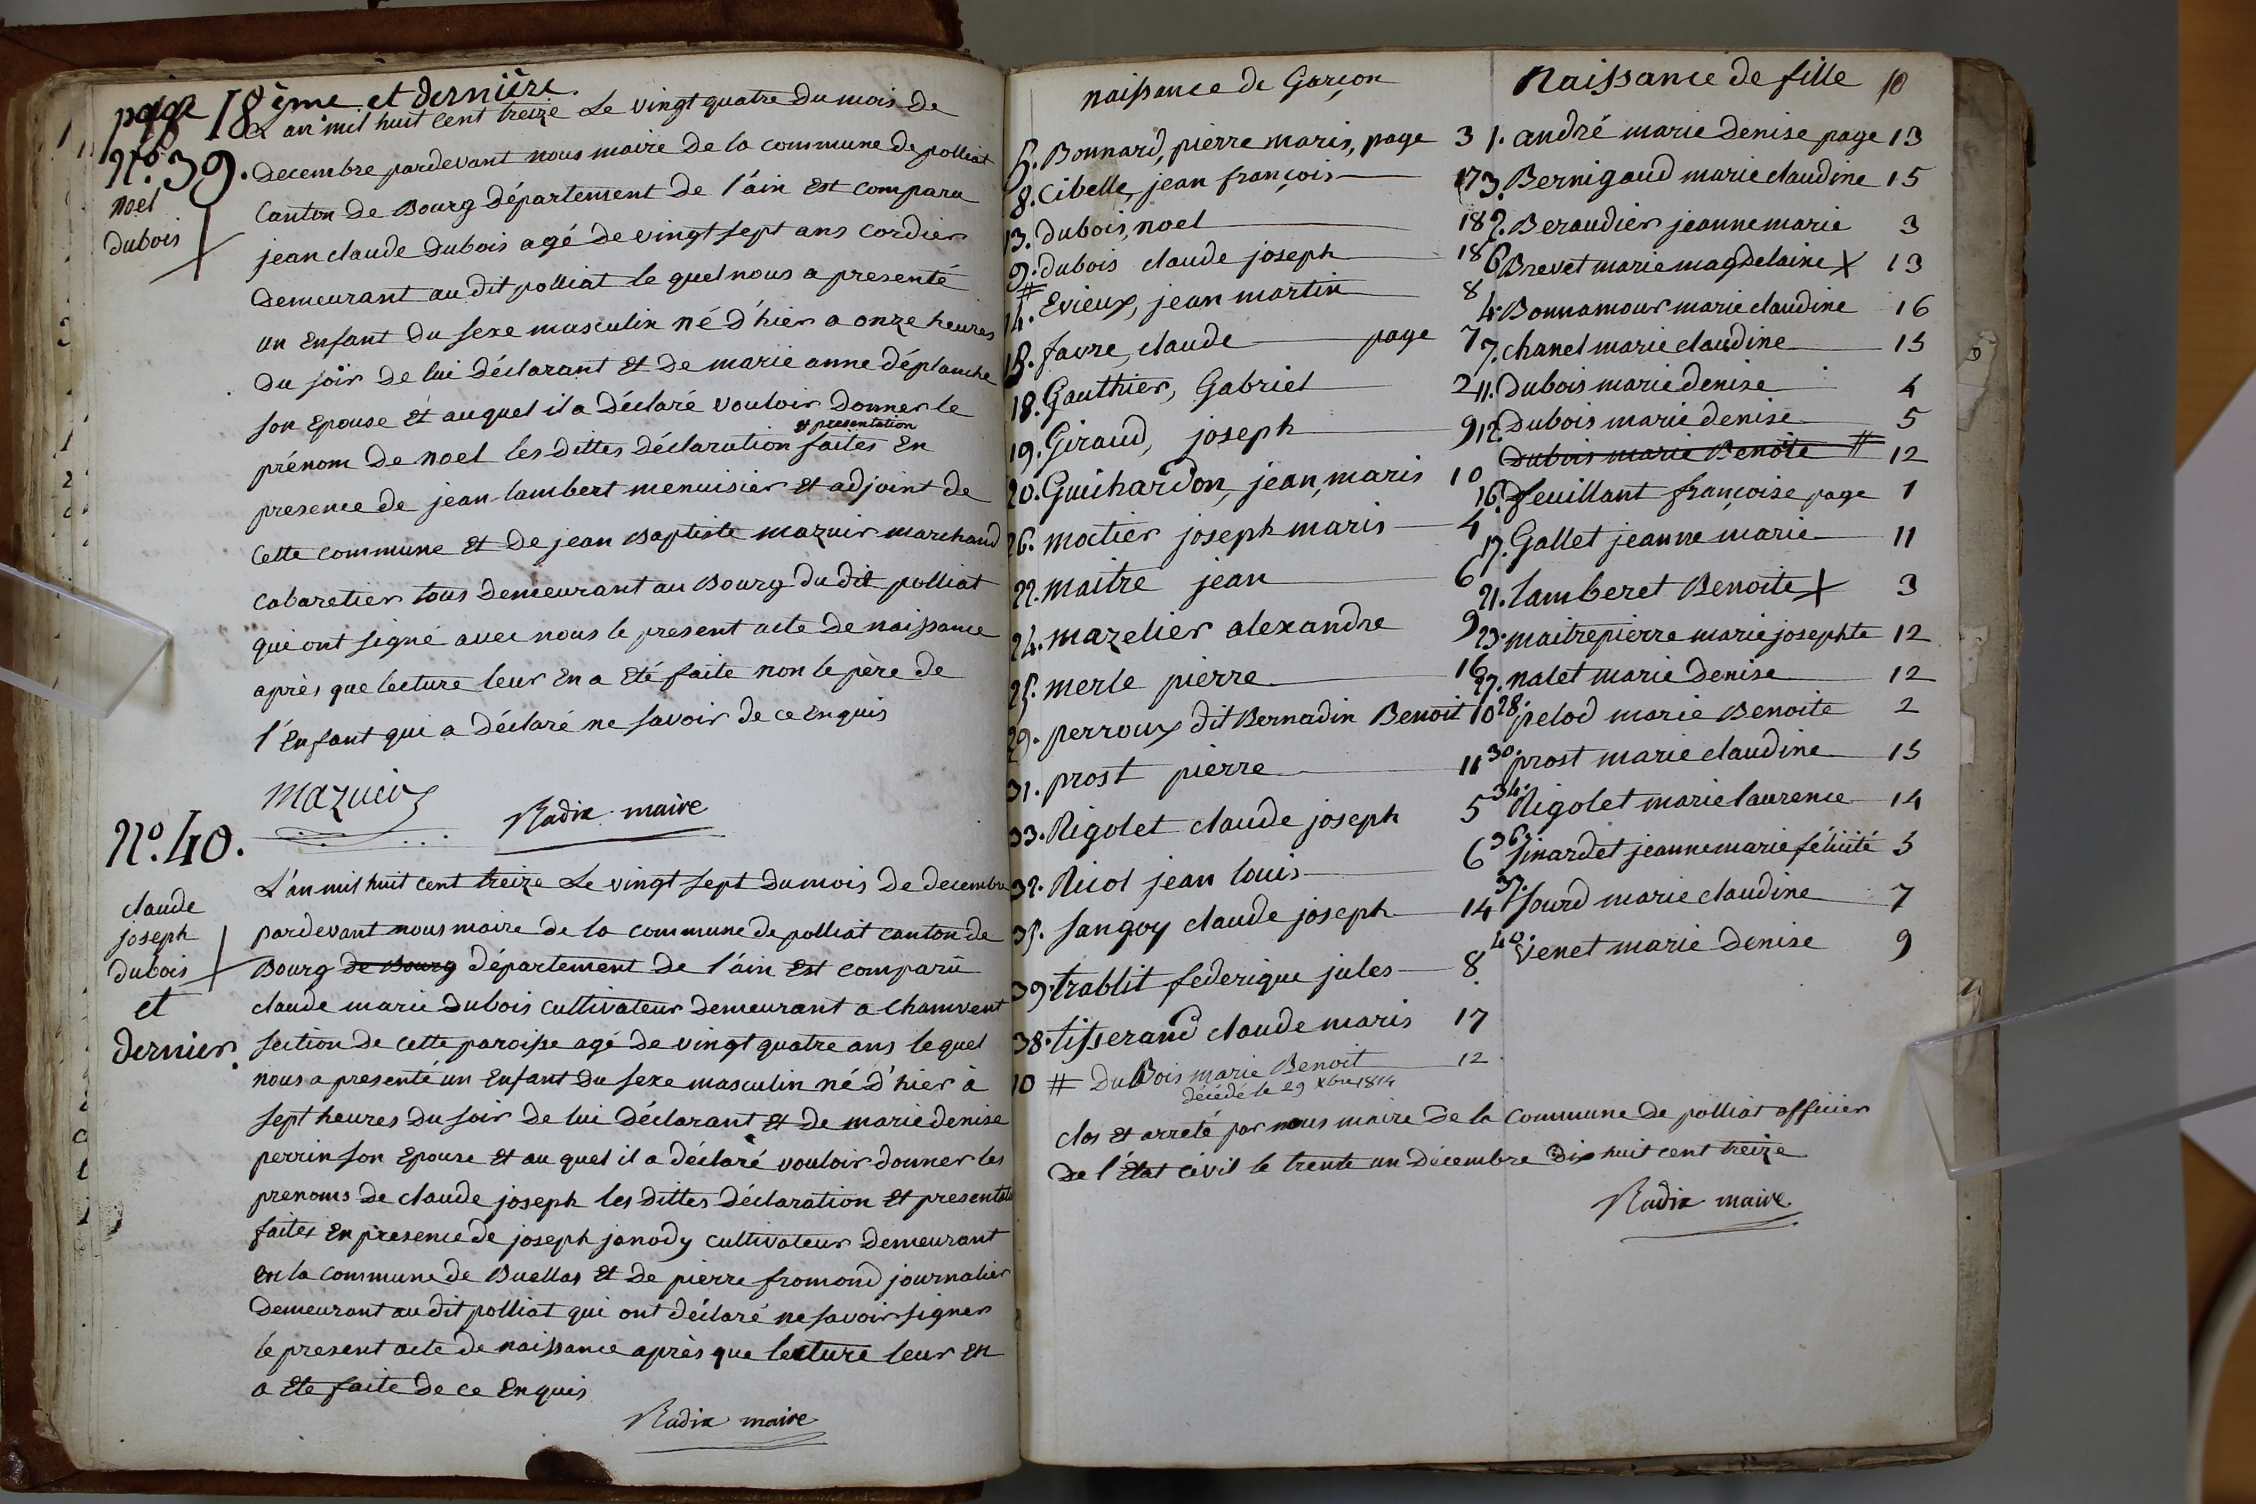 page 18ême et dernière.
L'an mil huit cent treize Le vingt quatre du mois de
N.º 39.
noel
dubois
decembre pardevant nous maire de la commune de polliat
Canton de Bourg département de l'ain Est comparu
jean claude Dubois agé de vingt sept ans cordier
demeurant au dit polliat le quel nous a presenté
un Enfant du sexe masculin né d'hier a onze heures
du soir de lui déclarant Et de marie anne déplanche
son Epouse Et auquel il a déclaré vouloir donner le
prénom de noel les dittes déclaration et presentation faites En
presence de jean lambert menuisier Et adjoint de
cette commune Et de jean Baptiste mazuir marchand
cabaretier tous demeurant au Bourg du dit polliat
qui ont signé avec nous le present acte de naissance
après que lecture leur En a Eté faite non le père de
l'Enfant qui a déclaré ne savoir de ce Enquis
mazuir
Radix maire
N.º 40.
claude
joseph
dubois
et
dernier.
L'an mil huit cent treize Le vingt sept du mois de decembre
pardevant nous maire de la commune de polliat canton de
Bourg de Bourg département de l'ain Est comparû
claude marie Dubois cultivateur demeurant a Chamvent
section de cette paroisse agé de vingt quatre ans lequel
nous a presenté un Enfant du sexe masculin né d'hier à
sept heures du soir de lui déclarant Et de marie denise
perrin son Epouse Et au quel il a déclaré vouloir donner les
prenoms de claude joseph les dittes déclaration Et presentat
faites En presence de joseph janody cultivateur demeurant
En la commune de Buellas Et de pierre fromond journalier
demeurant au dit polliat qui ont déclaré ne savoir signer
le present acte de naissance après que lecture leur En
a Ete faite de ce Enquis
Radix maire
naissance de Garçon
5. Bonnard, pierre maris, page 3
8. Cibelle, jean françois 17
13. dubois, noel 18
9. dubois claude joseph 18
#
14. Evieux, jean martin 8
15. favre, claude page 7
18. Gauthier, Gabriel 2
19. Giraud, joseph 9
20. Guichardon, jean, maris 10
26. moctier joseph maris 4
22. maitre jean 6
24. mazelier alexandre 9
25. merle pierre 16
29. perroux dit Bernadin Benoit 10
31. prost pierre 11
33. Rigolet claude joseph 5
32. Ricol jean louis 6
35. sangoy claude joseph 14
39. trablit federique jules 8
38. tisserand claude maris 17
10 # DuBois marie Benoit 12
décédé le 29 Xbre 1814
Naissance de fille 10
1. andré marie denise page 13
3. Bernigaud marie claudine 15
2. Beraudier jeanne marie 3
6 Brevet marie magdelaine X 13
4. Bonnamour marie claudine 16
7. chanel marie claudine 15
11. Dubois marie denise 4
12. Dubois marie denise 5
Dubois marie Benoite # 12
16. feuillant françoise page 1
17. Gallet jeanne marie 11
21. lamberet Benoite X 3
23. maitrepierre marie josephte 12
27. nalet marie denise 12
28. pelod marie Benoite 2
30. prost marie claudine 15
34. Rigolet marie laurence 14
36. sinardet jeanne marie félicité 5
37. sourd marie claudine 7
40. venet marie denise 9
clos Et arreté par nous maire de la commune de polliat officier
de l'Etat civil le trente un décembre dix huit cent treize
Radix maire